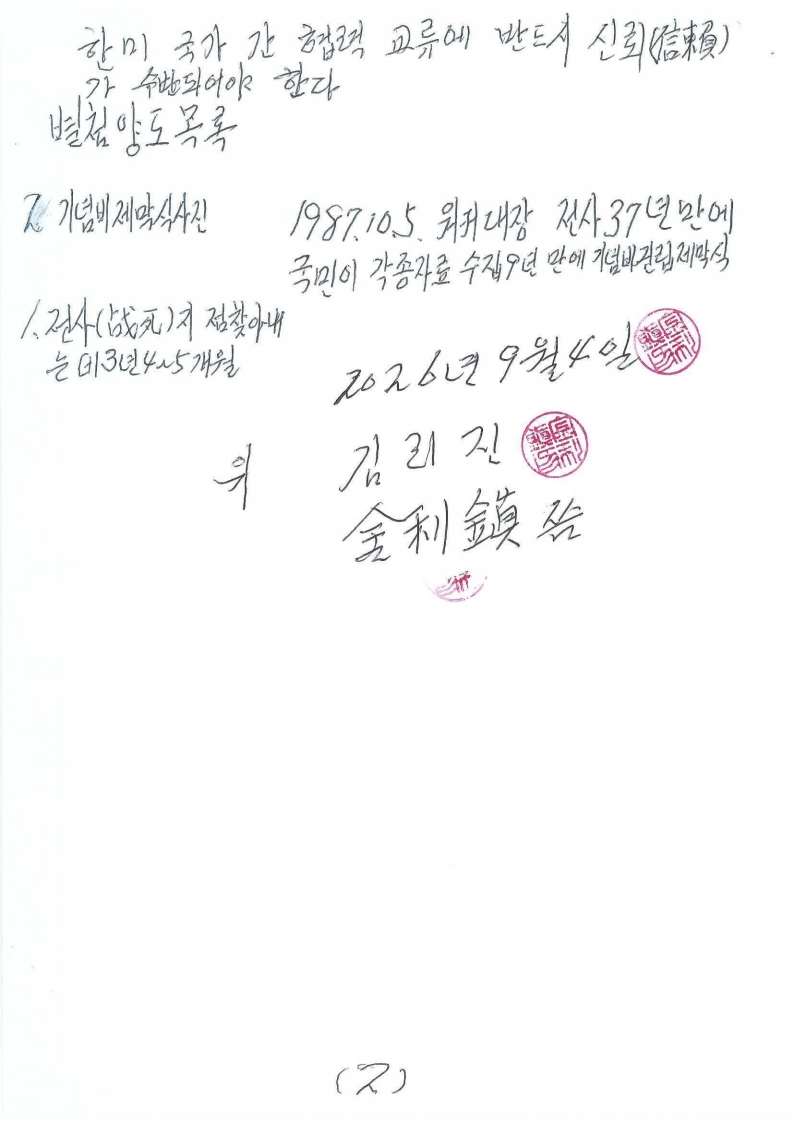 한미 국가 간 협력 교류에 반드시 신뢰(信賴)
가 수반되어야 한다
별첨양도목록
2. 기념비제막식사진
1987.10.5. 워커대장 전사37년만에
국민이 각종자료 수집9년 만에 기념비건립제막식
1. 전사(战死)지 점찾아내
는데3년4~5개월
2026년 9월 4일
위 김리진
金利鎭 씀
(2)